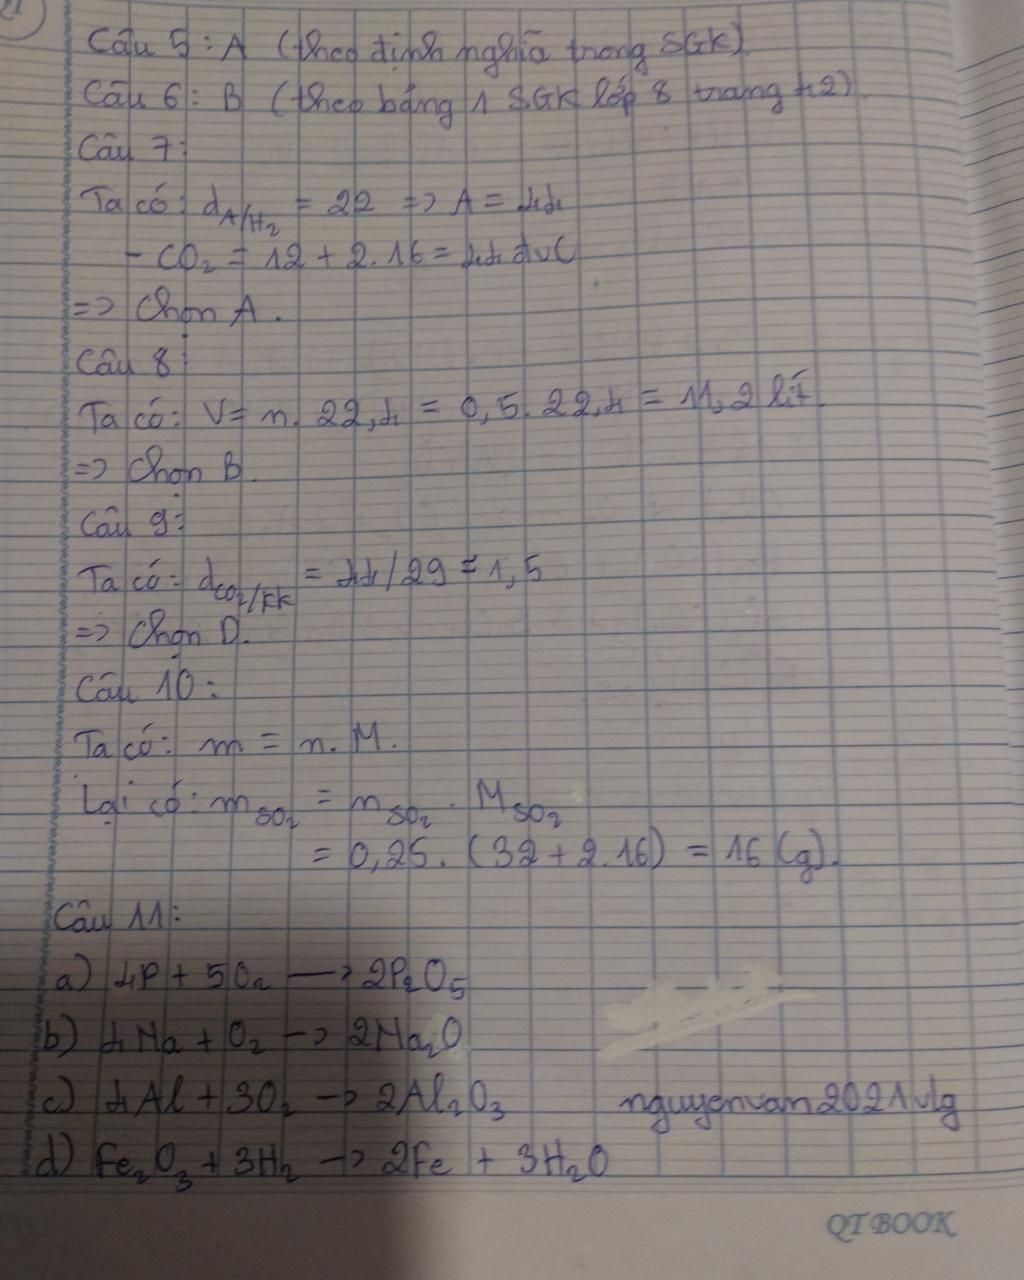 Câu 5: A (theo định nghĩa trong SGK)
Câu 6: B (theo bảng 1 SGK lớp 8 trang 42).
Câu 7:
Ta có: dA/H₂ = 22 => A = 44
- CO₂ = 12 + 2.16 = 44 đvC
=> Chọn A.
Câu 8:
Ta có: V = n. 22,4 = 0,5. 22,4 = 11,2 lít.
=> Chọn B.
Câu 9:
Ta có: dCO₂/KK = 44/29 = 1,5
=> Chọn D.
Câu 10:
Ta có: m = n. M.
Lại có: mSO₂ = nSO₂ . MSO₂
= 0,25. (32 + 2.16) = 16 (g).
Câu 11:
a) 4P + 5O₂ → 2P₂O₅
b) 4Na + O₂ → 2Na₂O
c) 4Al + 3O₂ → 2Al₂O₃ nguyenvan2021vlg
d) Fe₂O₃ + 3H₂ → 2Fe + 3H₂O
QTBOOK